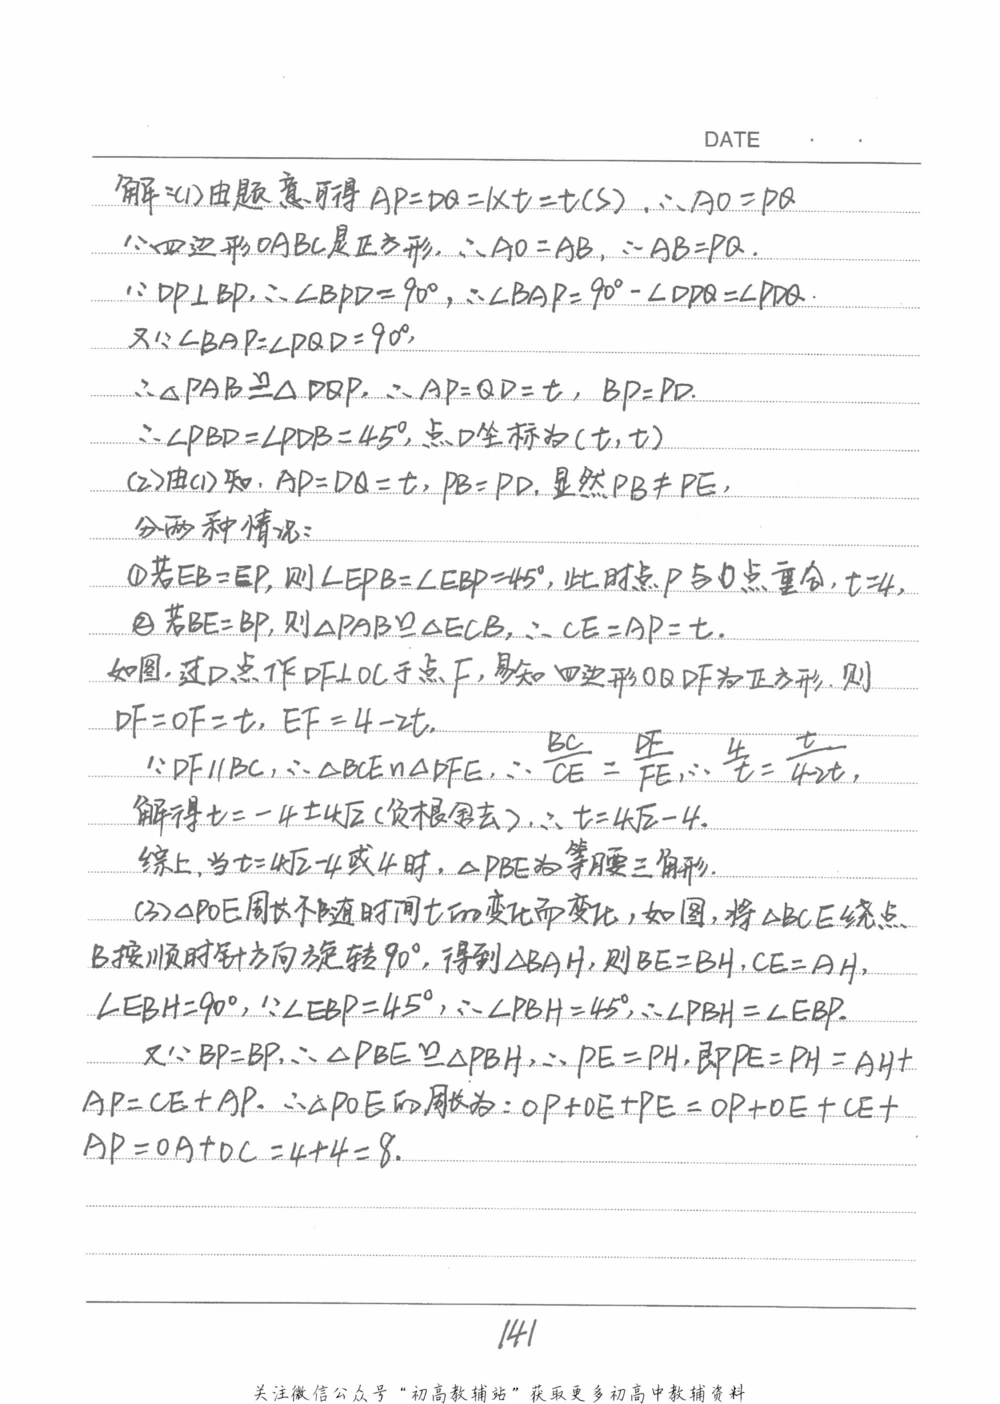 DATE · ·
解:(1)由题意可得 AP=DQ=1×t=t(s),∴AO=PQ
∵四边形OABC是正方形,∴AO=AB,∴AB=PQ.
∵DP⊥BP,∴∠BPD=90°,∴∠BAP=90°-∠DPQ=∠PDQ.
又∵∠BAP=∠PQD=90°,
∴△PAB≌△DQP,∴AP=QD=t, BP=PD.
∴∠PBD=∠PDB=45°,点D坐标为(t,t)
(2)由(1)知,AP=DQ=t,PB=PD.显然PB≠PE,
分两种情况:
①若EB=EP,则∠EPB=∠EBP=45°,此时点P与O点重合,t=4,
②若BE=BP,则△PAB≌△ECB,∴CE=AP=t.
如图,过D点作DF⊥OC于点F,易知四边形OQDF为正方形.则
DF=OF=t, EF=4-2t.
∵DF∥BC,∴△BCE∽△DFE,∴BC/CE=DF/FE,∴4/t=t/4-2t,
解得t=-4±4√2(负根舍去),∴t=4√2-4.
综上,当t=4√2-4或4时,△PBE为等腰三角形.
(3)△POE周长不随时间t的变化而变化,如图,将△BCE绕点
B按顺时针方向旋转90°,得到△BAH,则BE=BH,CE=AH,
∠EBH=90°,∵∠EBP=45°,∴∠PBH=45°,∴∠PBH=∠EBP.
又∵BP=BP,∴△PBE≌△PBH,∴PE=PH,即PE=PH=AH+
AP=CE+AP.∴△POE的周长为:OP+OE+PE=OP+OE+CE+
AP=OA+OC=4+4=8.
141
关注微信公众号“初高教辅站”获取更多初高中教辅资料